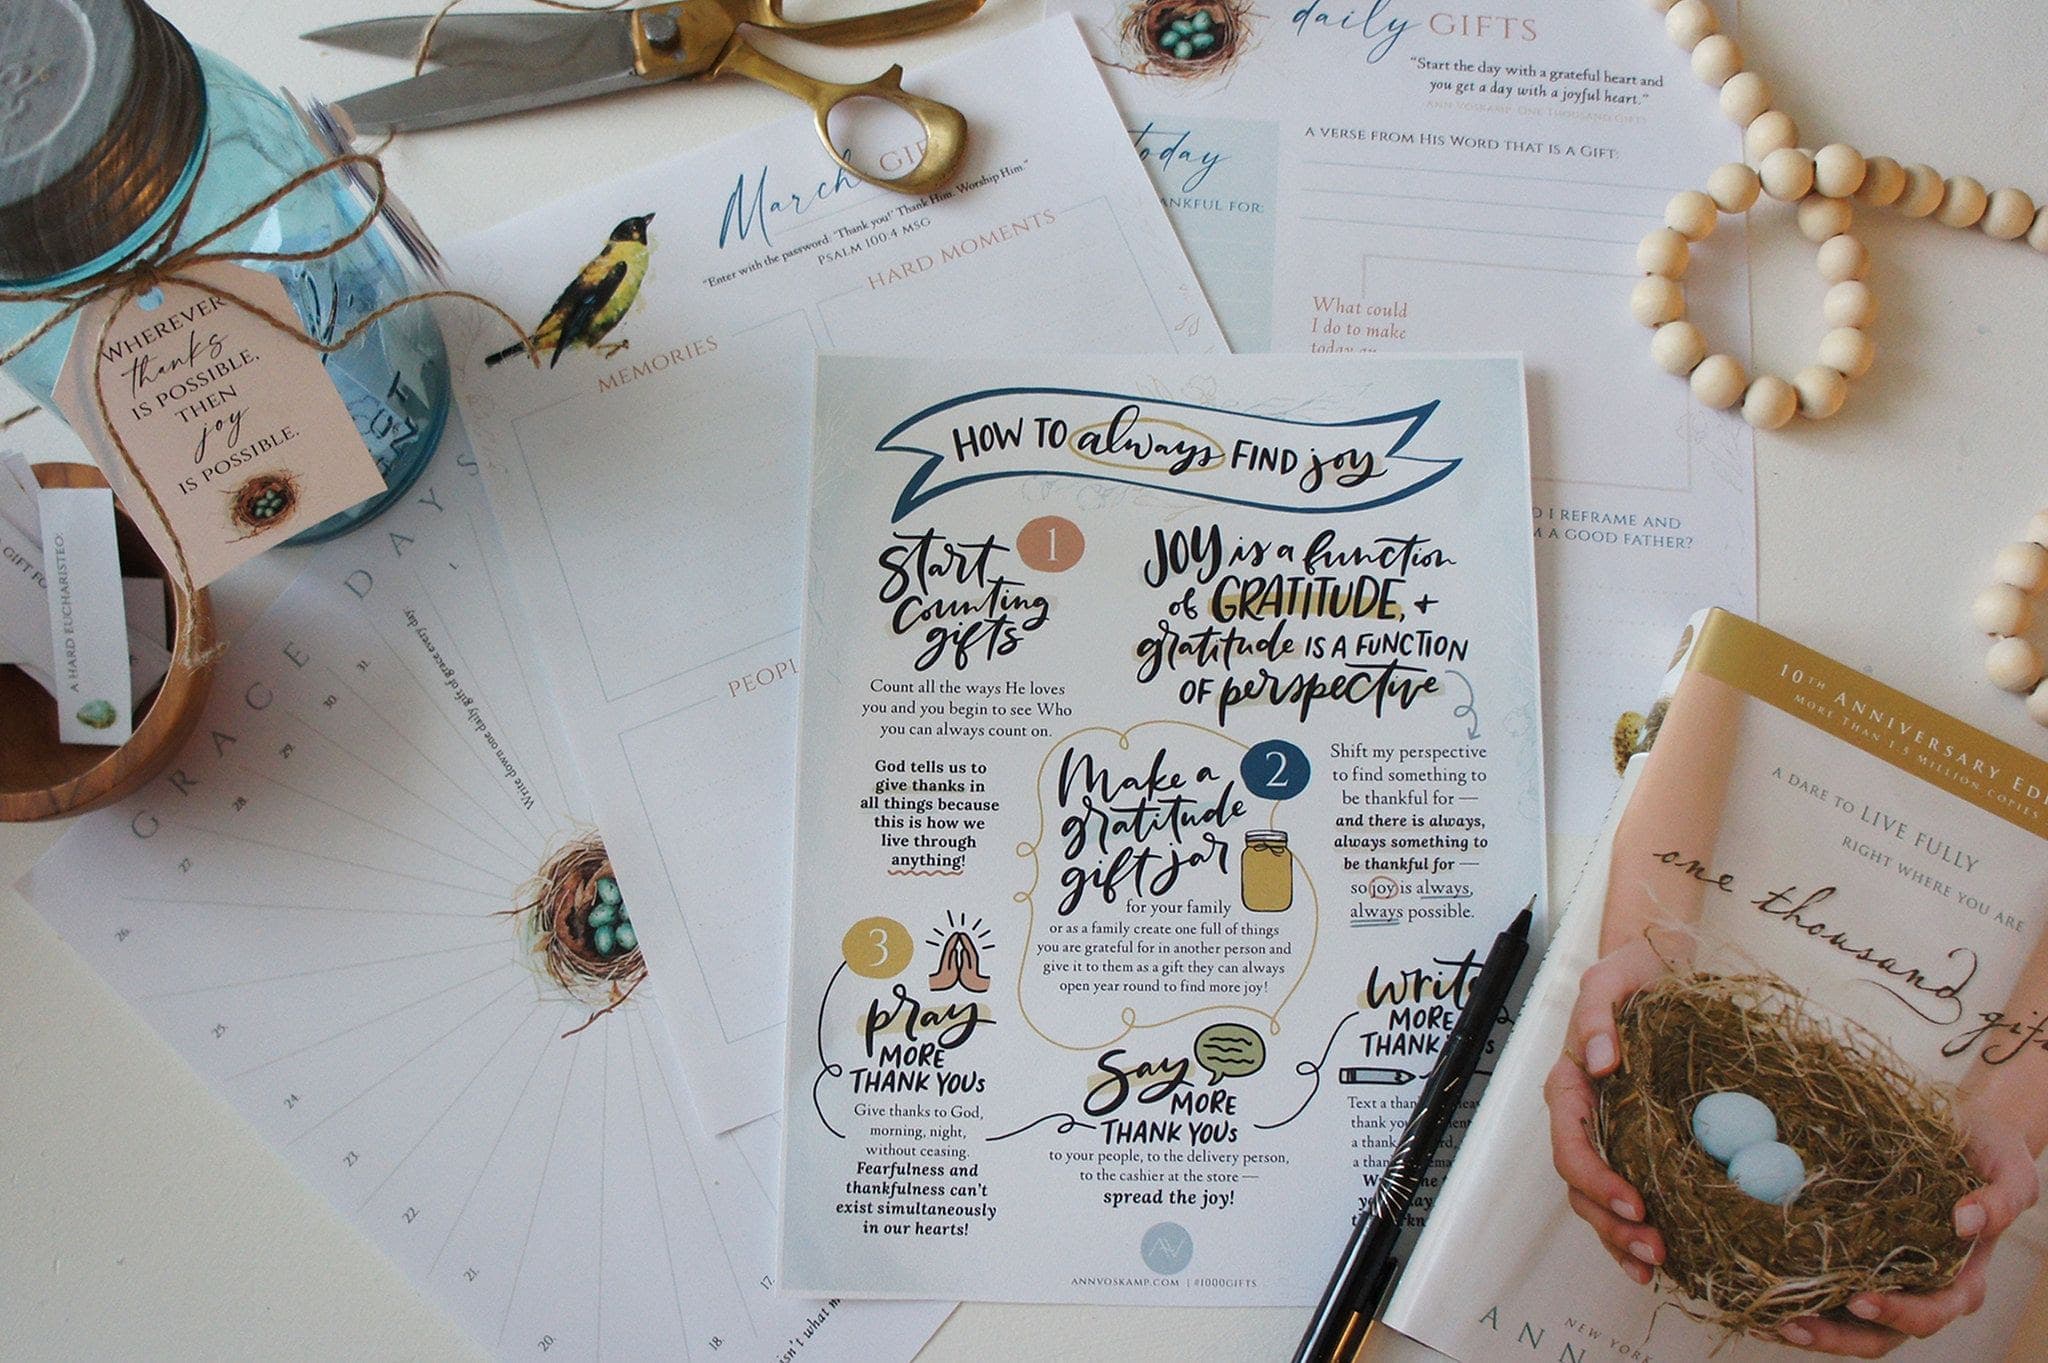 WHEREVER
thanks
IS POSSIBLE,
THEN
joy
IS POSSIBLE.
A HARD EUCHARISTEO:
GIFT
GRACE DAYS
Write down one daily gift of grace every day:
1
31.
30.
29.
28.
27.
26.
25.
24.
23.
22.
21.
20.
18.
17.
isn't what
March
"Enter with the password: 'Thank you!' Thank Him. Worship Him."
PSALM 100:4 MSG
MEMORIES
HARD MOMENTS
daily GIFTS
"Start the day with a grateful heart and
you get a day with a joyful heart."
ANN VOSKAMP, ONE THOUSAND GIFTS
today
FOR:
A VERSE FROM HIS WORD THAT IS A GIFT:
What could
I do to make
today
I REFRAME AND
A GOOD FATHER?
HOW TO always FIND joy
1
Start
counting
gifts
Count all the ways He loves
you and you begin to see Who
you can always count on.
God tells us to
give thanks in
all things because
this is how we
live through
anything!
JOY is a function
of GRATITUDE, +
gratitude IS A FUNCTION
OF perspective
Shift my perspective
to find something to
be thankful for —
and there is always,
always something to
be thankful for —
so joy is always,
always possible.
2
Make a
gratitude
gift jar
for your family
or as a family create one full of things
you are grateful for in another person and
give it to them as a gift they can always
open year round to find more joy!
3
pray
MORE
THANK YOUs
Give thanks to God,
morning, night,
without ceasing.
Fearfulness and
thankfulness can't
exist simultaneously
in our hearts!
Say
MORE
THANK YOUs
to your people, to the delivery person,
to the cashier at the store —
spread the joy!
Write
MORE
THANK
Text a
thank
a thank
a
ANNVOSKAMP.COM | #1000GIFTS
10TH ANNIVERSARY
MORE THAN 1.5 MILLION COPIES
A DARE TO LIVE FULLY
RIGHT WHERE YOU ARE
one thousand
ANN
NEW YORK